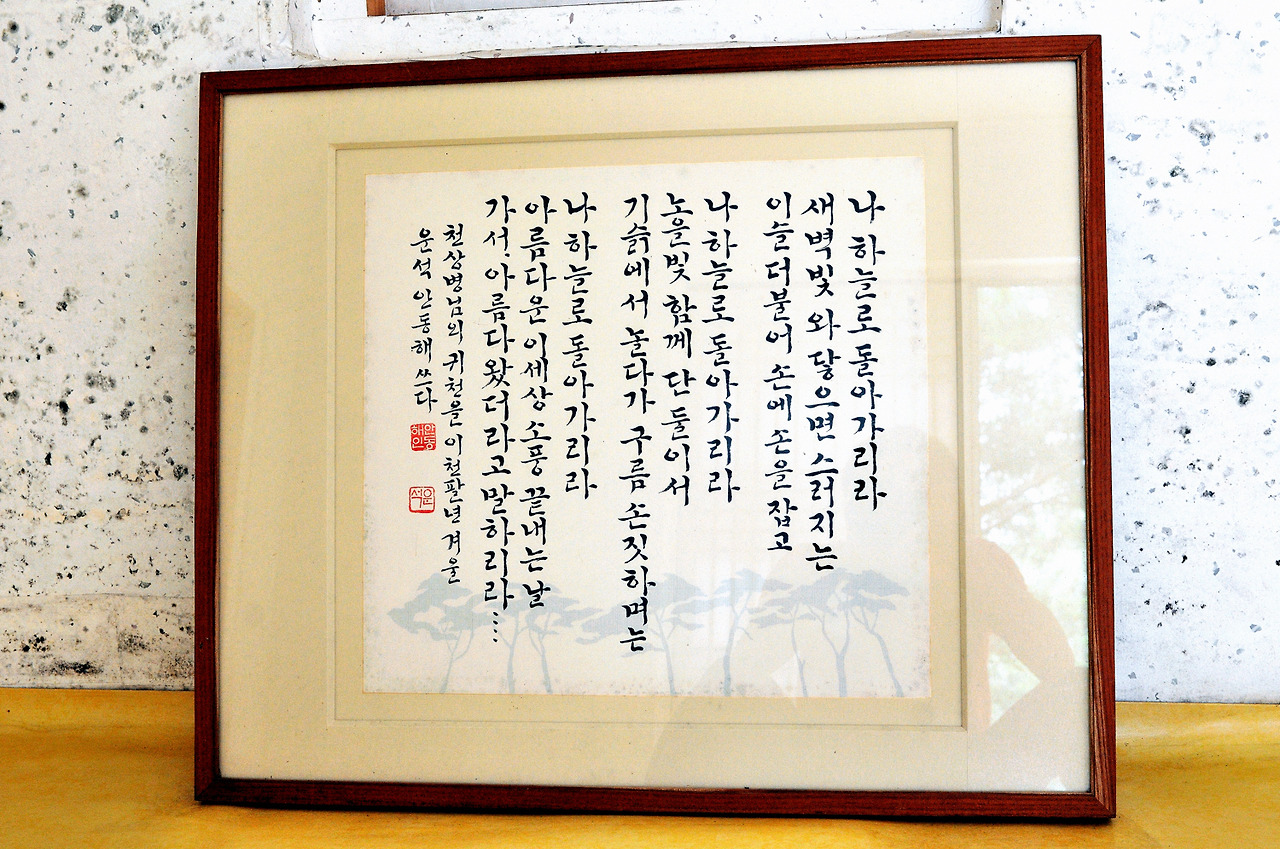 나 하늘로 돌아가리라
새벽빛 와 닿으면 스러지는
이슬 더불어 손에 손을 잡고
나 하늘로 돌아가리라
노을빛 함께 단 둘이서
기슭에서 놀다가 구름 손짓하며는
나 하늘로 돌아가리라
아름다운 이세상 소풍 끝내는 날
가서. 아름다왔더라고 말하리라....
천상병님의 귀천을 이천팔년 겨울
운석 안동해 쓰다
안동해인
운석